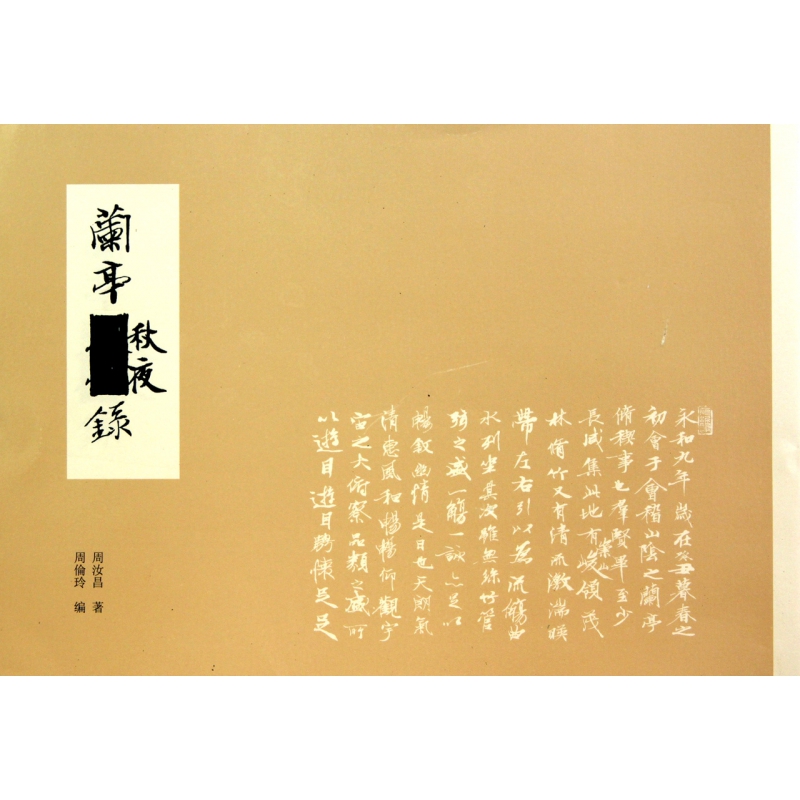 蘭亭秋夜錄
周汝昌 著
周倫玲 编
永和九年歲在癸丑暮春之
初會于會稽山陰之蘭亭
脩稧事也羣賢畢至少
長咸集此地有崇山峻領茂
林脩竹又有清流激湍暎
帶左右引以爲流觴曲
水列坐其次雖無絲竹管
弦之盛一觴一詠亦足以
暢叙幽情是日也天朗氣
清惠風和暢暢仰觀宇
宙之大俯察品類之盛所
以遊目遊目騁懷足足